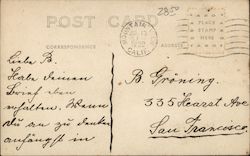 2850
POST CARD
CORRESPONDENCE
ADDRESS
PLACE
STAMP
HERE
MOUNTAIN
CALIF.
Liebe B.
Habe deinen
Brief eben
erhalten. Wenn
Du an zu denken
anfängst in
B. Gröning.
535 Hearst Ave
San Francisco